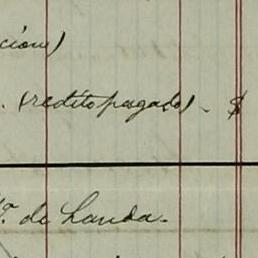 cion)
. (redito pagado). $
ª. de Landa.